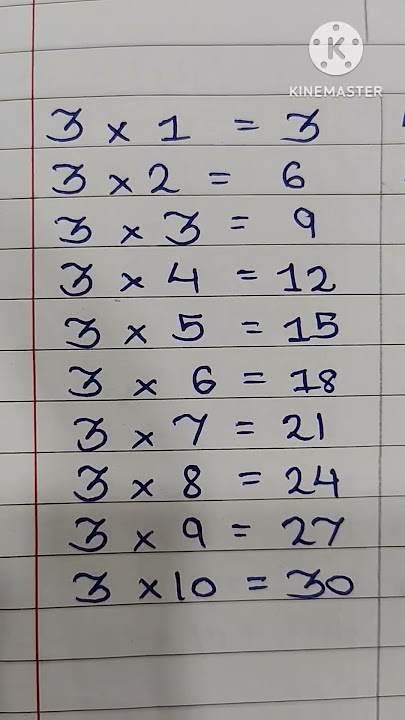 KINEMASTER
3 × 1 = 3
3 × 2 = 6
3 × 3 = 9
3 × 4 = 12
3 × 5 = 15
3 × 6 = 18
3 × 7 = 21
3 × 8 = 24
3 × 9 = 27
3 × 10 = 30